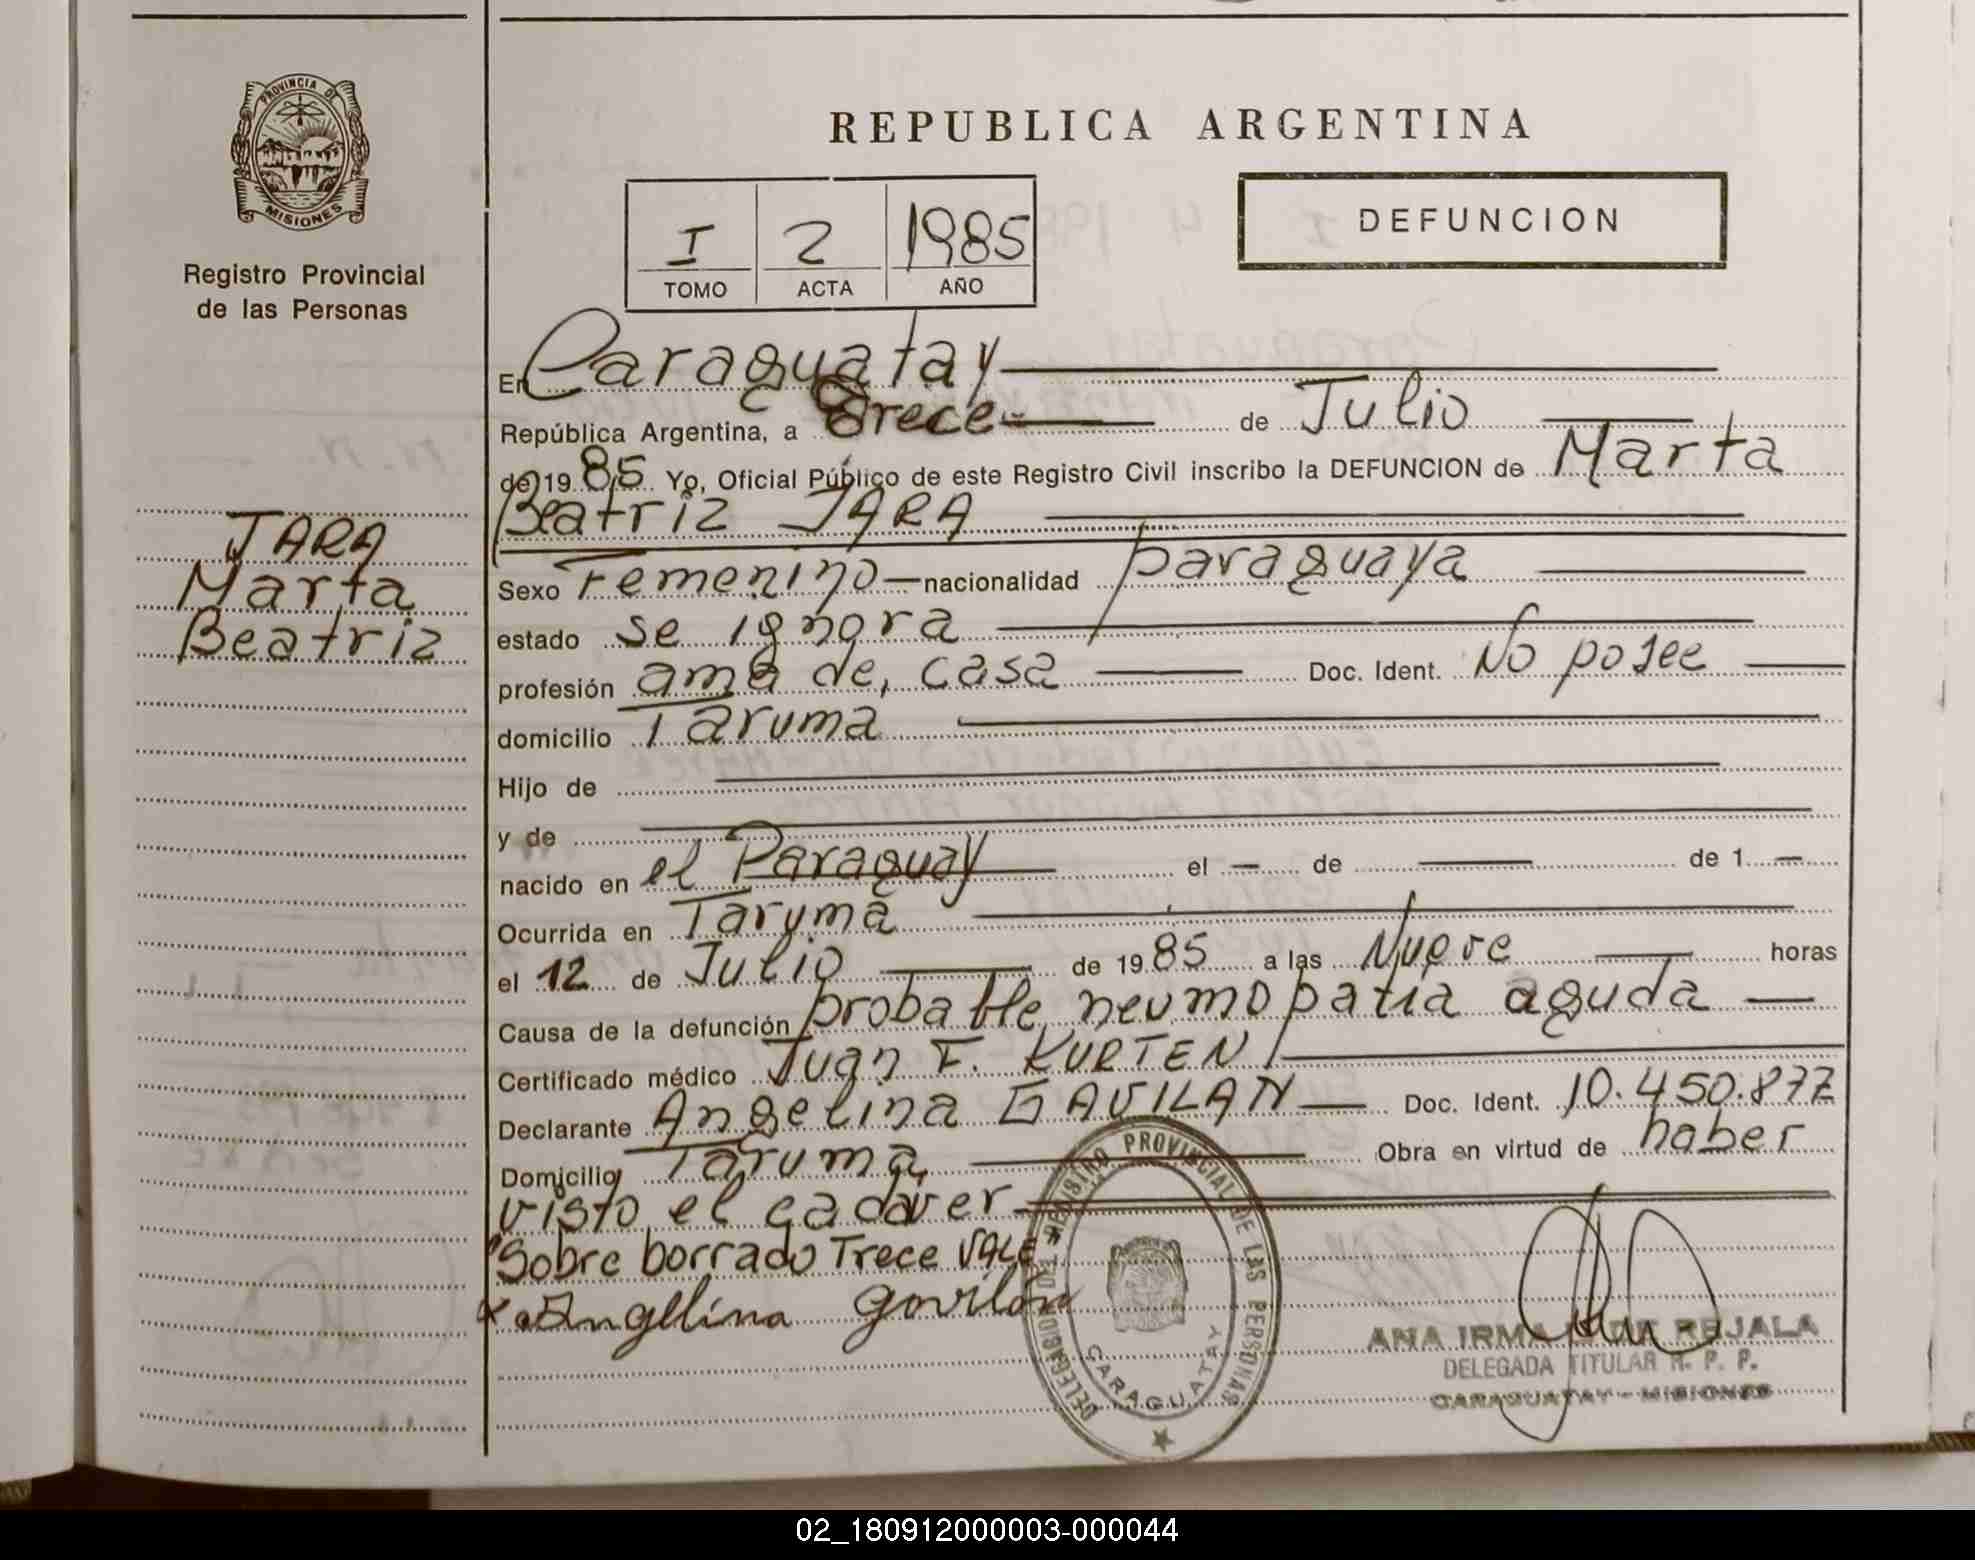 PROVINCIA DE
MISIONES
Registro Provincial
de las Personas
JARA
Marta
Beatriz
REPUBLICA ARGENTINA
I 2 1985
TOMO ACTA AÑO
DEFUNCION
En Caraguatay
República Argentina, a Trece de Julio
de 1985 Yo, Oficial Público de este Registro Civil inscribo la DEFUNCION de Marta
Beatriz JARA
Sexo Femenino nacionalidad paraguaya
estado se ignora
profesión ama de, casa Doc. Ident. No posee
domicilio Taruma
Hijo de
y de
nacido en el Paraguay el — de — de 1 —
Ocurrida en Taruma
el 12 de Julio de 1985 a las Nueve horas
Causa de la defunción probable neumopatia aguda
Certificado médico Juan F. KURTEN
Declarante Angelina GAVILAN Doc. Ident. 10.450.877
Domicilio Taruma Obra en virtud de haber
visto el cadaver
Sobre borrado Trece VALE
x Angelina gavilán
DELEGACION REGISTRO PROVINCIAL DE LAS PERSONAS
CARAGUATAY
ANA IRMA DE REJALA
DELEGADA TITULAR R. P. P.
CARAGUATAY - MISIONES
02_180912000003-000044